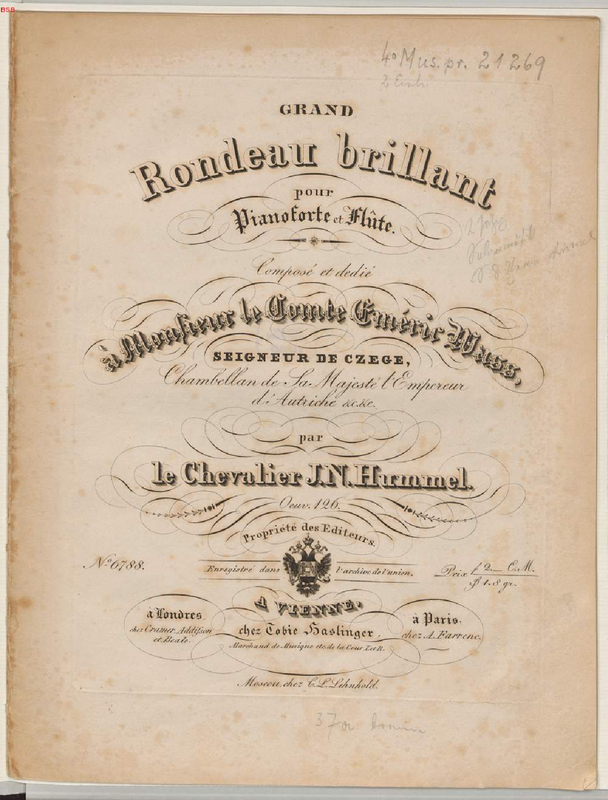 BSB
4° Mus. pr. 21269
GRAND
Rondeau brillant
pour
Pianoforte et Flûte.
Composé et dedié
à Monsieur le Comte Eméric Wass,
SEIGNEUR DE CZEGE,
Chambellan de Sa Majesté l'Empereur
d'Autriche &c.&c.
par
le Chevalier J.N. Hummel.
Oeuv. 126.
Propriété des Editeurs.
No 6788.
Enregistré dans l'archive de l'union.
Prix f 2 _ C.M.
1.8 gr.
A VIENNE,
chez Tobie Haslinger,
Marchand de Musique etc. de la Cour I. et R.
à Londres
chez Cramer Addison
et Beale.
à Paris.
chez A. Farrenc.
Moscou, chez C. L. Lehnhold.